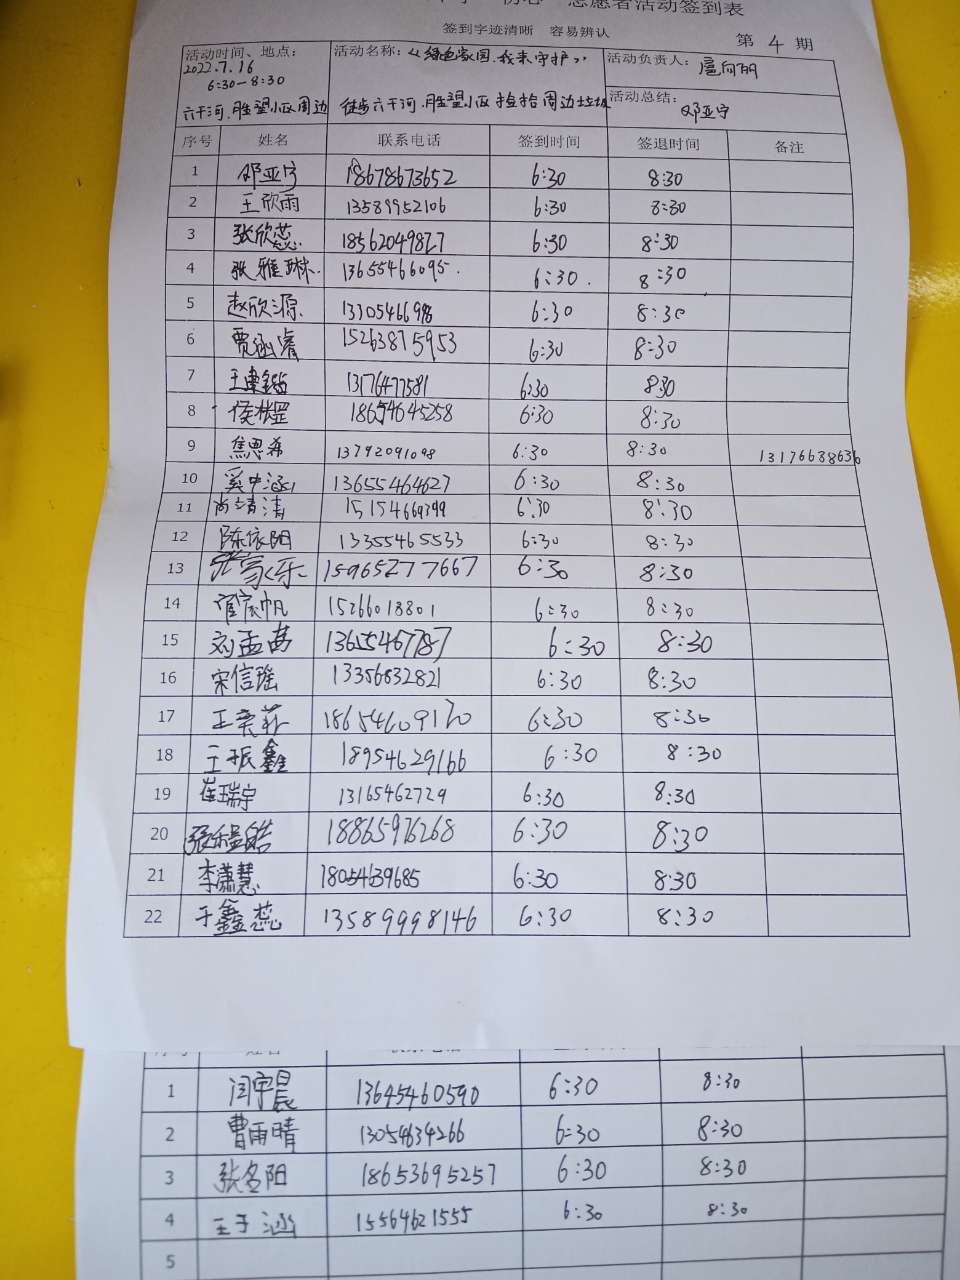 志愿者活动签到表
签到字迹清晰 容易辨认 第 4 期
活动时间、地点: 2022.7.16 6:30-8:30 六干河.胜望小区周边
活动名称:《绿色家园.我来守护》 徒步六干河.胜望小区捡拾周边垃圾
活动负责人: 扈向丽
活动总结: 邓亚宁
序号 姓名 联系电话 签到时间 签退时间 备注
1 邓亚宁 18678673652 6:30 8:30
2 王欣雨 13589952106 6:30 8:30
3 张欣蕊 18562049827 6:30 8:30
4 张雅琳. 13655466095. 6:30. 8:30
5 赵欣源 6:30 8:30
6 贾涵睿 15263875953 6:30 8:30
7 13176477581 6:30 8:30
8 18654645258 6:30 8:30
9 焦思希 13792091098 6:30 8:30 13176638636
10 奚中涵 13655464627 6:30 8:30
11 尚清清 6:30 8:30
12 陈依阳 13355465533 6:30 8:30
13 张家乐 15965277667 6:30 8:30
14 官宸帆 15266018801 6:30 8:30
15 刘孟苒 13655467787 6:30 8:30
16 宋信瑶 13356832821 6:30 8:30
17 18654609170 6:30 8:30
18 王振鑫 18954629166 6:30 8:30
19 崔瑞宇 13165462729 6:30 8:30
20 18865976268 6:30 8:30
21 李潇慧 18054639685 6:30 8:30
22 于鑫蕊 13589998146 6:30 8:30
1 闫宇晨 13645460590 6:30 8:30
2 曹雨晴 13054634266 6:30 8:30
3 张名阳 18653695257 6:30 8:30
4 王子涵 15564621555 6:30 8:30
5